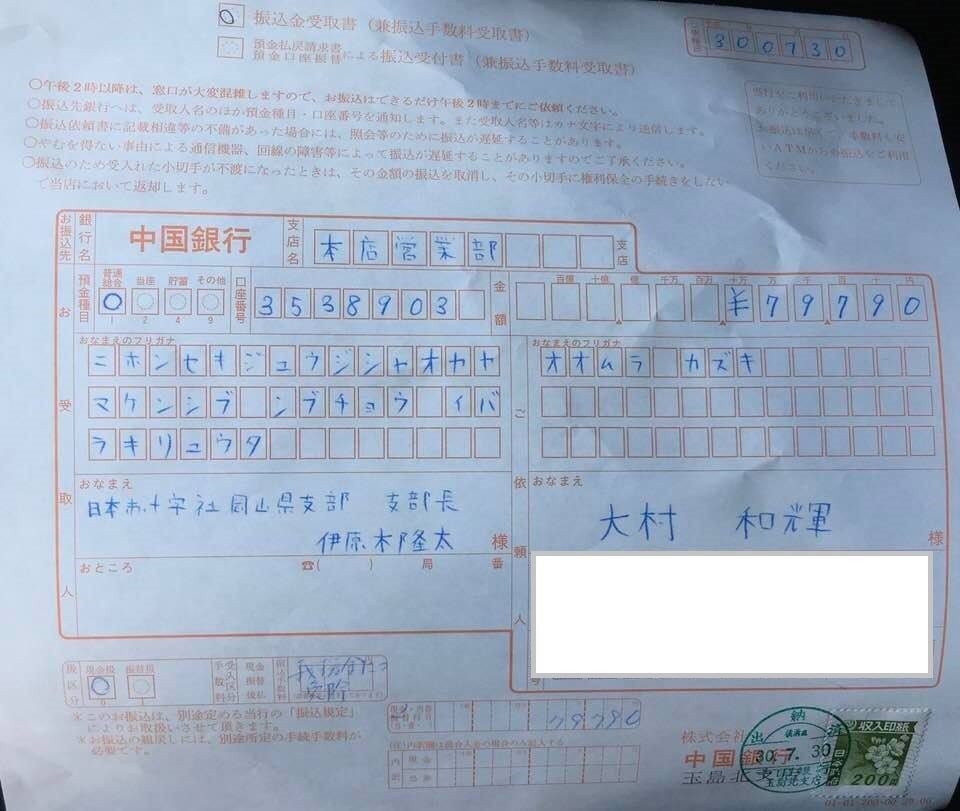 振込金受取書（兼振込手数料受取書）
預金払戻請求書
預金口座振替による振込受付書（兼振込手数料受取書）
300730
○午後2時以降は、窓口が大変混雑しますので、お振込はできるだけ午後2時までにご依頼ください。
○振込先銀行へは、受取人名のほか預金種目・口座番号を通知します。また受取人名等はカナ文字により送信します。
○振込依頼書に記載相違等の不備があった場合には、照会等のために振込が遅延することがあります。
○やむを得ない事由による通信機器、回線の障害等によって振込が遅延することがありますのでご了承ください。
○振込のため受入れた小切手が不渡になったときは、その金額の振込を取消し、その小切手に権利保全の手続きをしない
で当店において返却します。
当行をご利用いただきまして
ありがとうございました。
お振込は早くて、手数料も安
いATMからの振込をご利用
ください。
お振込先
銀行名
中国銀行
支店名
本店営業部
支店
預金種目
普通総合
当座
貯蓄
その他
1 2 4 9
口座番号
3538903
金額
百億 十億 億 千万 百万 十万 万 千 百 十 円
¥79790
お受取人
おなまえのフリガナ
ニホンセキジュウジシャオカヤ
マケンシブ ンブチョウ イバ
ラキリュウタ
おなまえ
日本赤十字社岡山県支部 支部長
伊原木隆太
様
おところ
☎( ) 局 番
ご依頼人
おなまえのフリガナ
オオムラ カズキ
おなまえ
大村 和輝
様
号
扱区分
現金扱
振替扱
0 1
手数料
受入区分
現金
振替
後払
※このお振込は、別途定める当行の「振込規定」
によりお取扱いさせて頂きます。
※お振込の組戻しには、別途所定の手続手数料が
必要です。
79790
内訳
現金
株式会社
中国銀行
玉島北支店
出納
済
30.7.30
中国銀行
玉島北支店
収入印紙
日本政府
200円